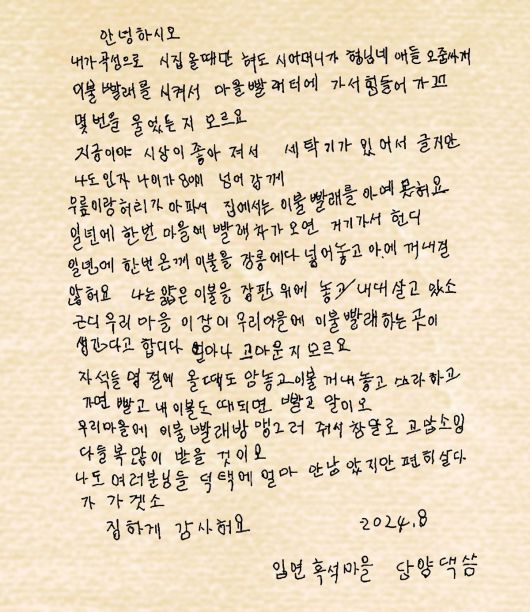 안녕하시오
내가 곡성으로 시집 올때만 혀도 시어머니가 형님네 애들 오줌싸게
이불 빨래를 시켜서 마을 빨래터에 가서 힘들어 가꼬
몇번을 울었는지 모르요
지금이야 시상이 좋아 져서 세탁기가 있어서 글치만
나도 인자 나이가 80이 넘어 강께
무릎이랑 허리가 아파서 집에서는 이불 빨래를 아예 못혀요
일년에 한번 마을에 빨래차가 오면 거기가서 헌디
일년에 한번 온께 이불을 장롱에다 넣어놓고 아예 꺼내질
않허요 나는 얇은 이불을 장판 위에 놓고 내대 살고 있소
근디 우리 마을 이장이 우리마을에 이불 빨래 하는 곳이
생긴다고 합디다 얼마나 고마운지 모르요
자석들 명절에 올때도 암놓고 이불 꺼내 놓고 쓰라하고
가면 빨고 내 이불도 때되면 빨고 말이오
우리마을에 이불 빨래방 맹그러 줘서 참말로 고맙소잉
다들 복 많이 받을 것이오
나도 여러분님들 덕택에 얼마 안남았지만 편히 살다
가 가겟소
집하게 감사허요 2024.8
입면 흑석마을 단양댁 씀